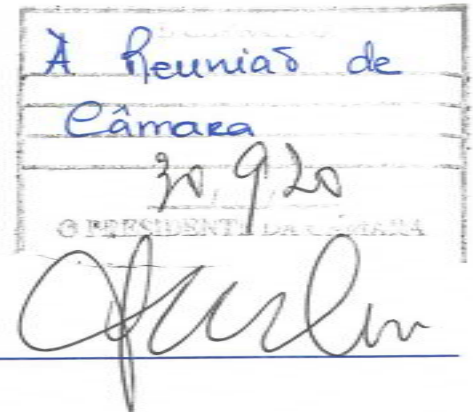 À Reunião de
Câmara
30 9 20
O PRESIDENTE DA CÂMARA